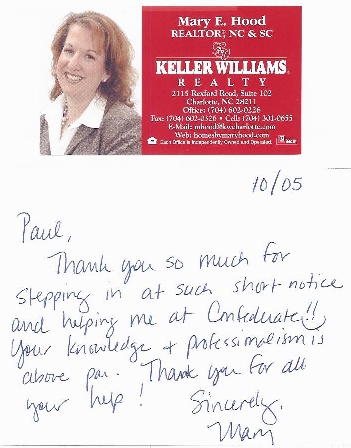 Mary E. Hood
REALTOR®, NC & SC
KELLER WILLIAMS
REALTY
2115 Rexford Road, Suite 102
Charlotte, NC 28211
Office: (704) 602-0226
Fax: (704) 602-2326 • Cell: (704) 301-0655
E-Mail: mhood@kwcharlotte.com
Web: homesbymaryhood.com
Each Office is Independently Owned and Operated.
10/05
Paul,
Thank you so much for
stepping in at such short notice
and helping me at Confederate!!
Your knowledge + professionalism is
above par. Thank you for all
your help!
Sincerely,
Mary